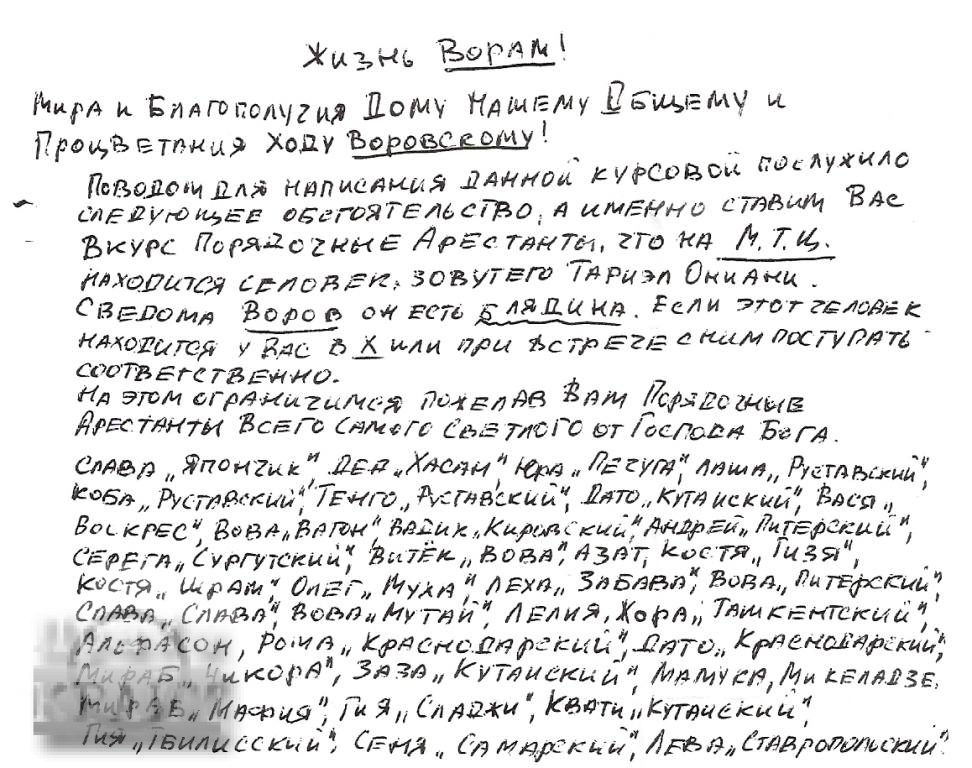 Жизнь Ворам!
Мира и Благополучия Дому Нашему Общему и
Процветания Ходу Воровскому!
Поводом для написания данной курсовой послужило
следующее обстоятельство, а именно ставим Вас
Вкурс Порядочные Арестанты, что на М.Т.Ц.
находится селовек, зовутего Тариэл Ониани.
Сведома Воров он есть блядина. Если этот человек
находится у Вас в Х или при встрече с ним поступать
соответственно.
На этом ограничимся пожелав Вам Порядочные
Арестанты Всего Самого Светлого от Господа Бога.
Слава „Япончик", Дед „Хасан", Юра „Пичуга", Лаша „Руставский",
Коба „Руставский", Тенго „Руставский", Дато „Кутаиский", Вася „
Воскрес", Вова „Вагон", Вадик „Кировский", Андрей „Питерский",
Серега „Сургутский", Витёк „Вова", Азат, Костя „Гизя",
Костя „Шрам", Олег „Муха", Леха „Забава", Вова „Питерский",
Слава „Слава", Вова „Мутай", Лелия, Хора „Ташкентский",
Альфасон, Рома „Краснодарский", Дато „Краснодарский",
Мираб „Чикора", Заза „Кутаиский", Мамука, Микеладзе,
Мираб „Мафия", Гия „Сладжи", Квати „Кутаиский",
Гия „Тбилисский", Сеня „Самарский", Лева „Ставропольский".